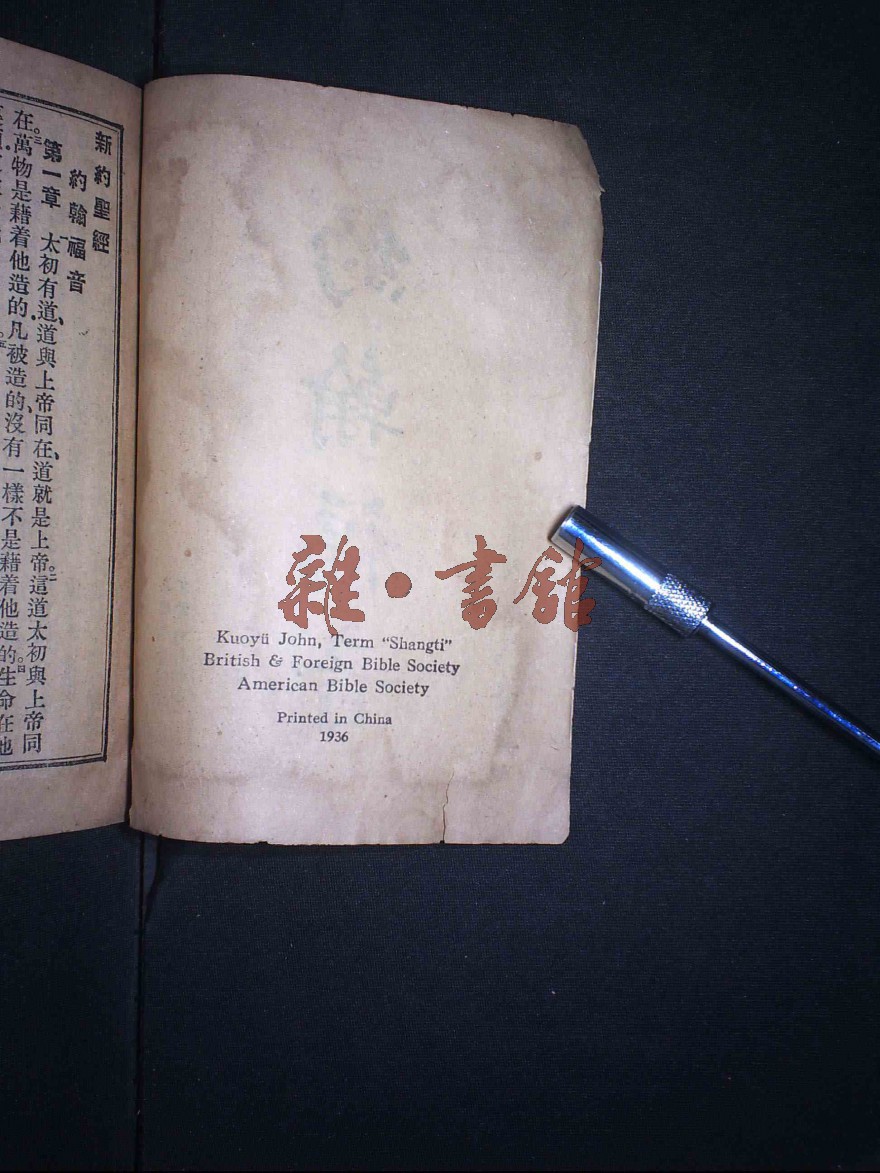 雜·書館
Kuoyü John, Term “Shangti”
British & Foreign Bible Society
American Bible Society
Printed in China
1936
新約聖經
約翰福音
第一章 太初有道、道與上帝同在、道就是上帝。二這道太初與上帝同
在。三萬物是藉着他造的.凡被造的、沒有一樣不是藉着他造的。四生命在他